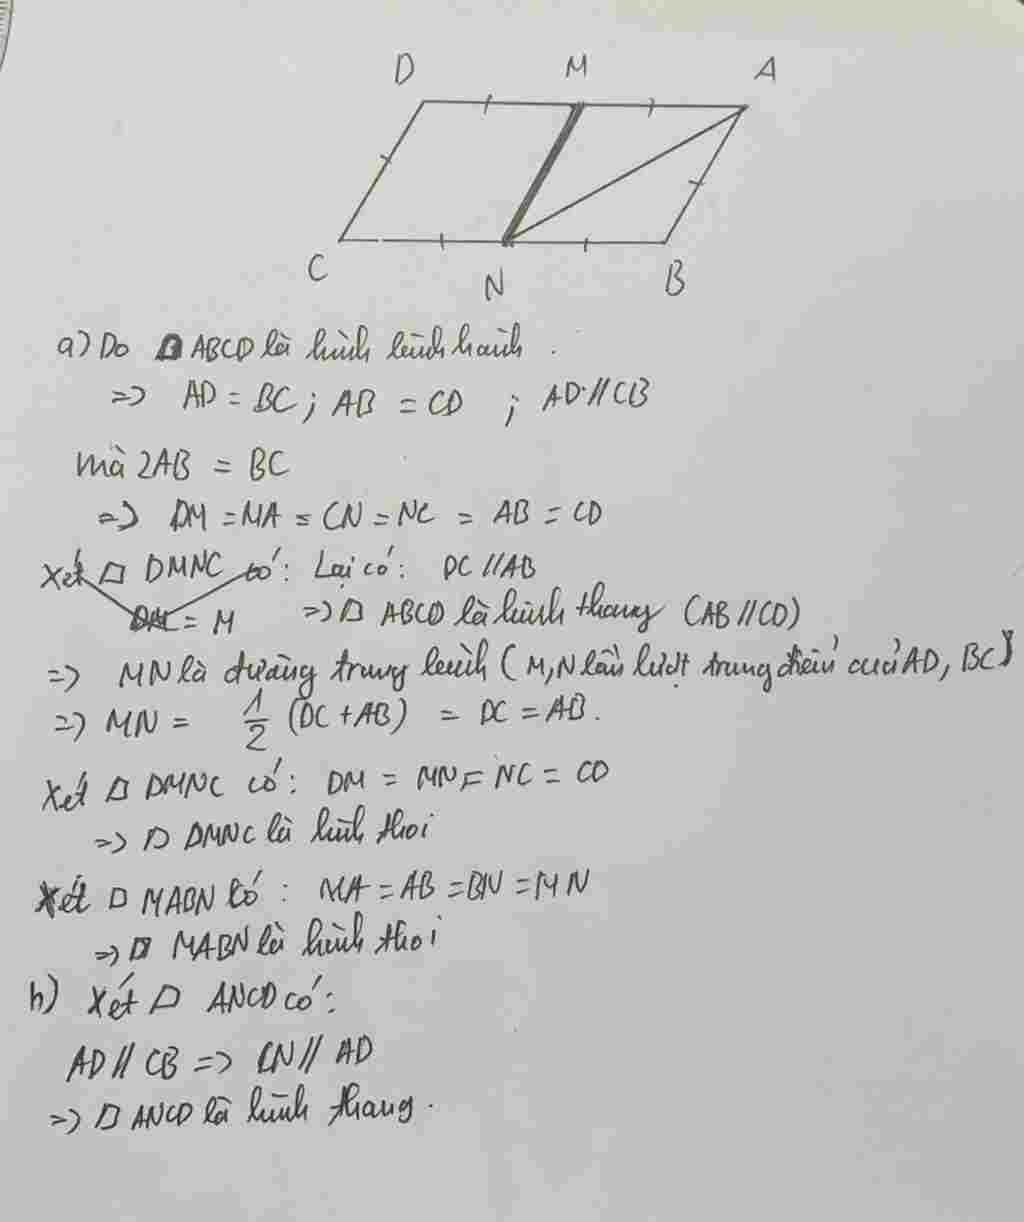 D M A
C N B
a) Do ▱ ABCD là hình bình hành.
=> AD = BC ; AB = CD ; AD // CB
mà 2AB = BC
=> DM = MA = CN = NC = AB = CD
Xét ▱ DMNC có: Lại có: DC // AB
= M => ▱ ABCD là hình thang (AB // CD)
=> MN là đường trung bình (M, N lần lượt trung điểm của AD, BC)
=> MN = 1/2 (DC + AB) = DC = AB.
Xét ▱ DMNC có: DM = MN = NC = CD
=> ▱ DMNC là hình thoi
Xét ▱ MABN có: MA = AB = BN = MN
=> ▱ MABN là hình thoi
b) Xét ▱ ANCD có:
AD // CB => CN // AD
=> ▱ ANCD là hình thang.